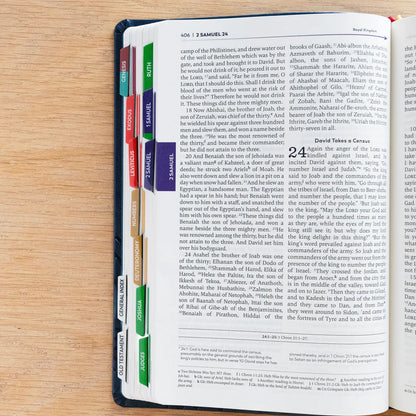 406 | 2 SAMUEL 24
Royal Kingdom
camp of the Philistines, and drew water out
of the well of Bethlehem which was by the
gate, and took and brought it to David. But
he would not drink of it; he poured it out to
the LORD, 17and said, "Far be it from me, O
LORD, that I should do this. Shall I drink the
blood of the men who went at the risk of
their lives?" Therefore he would not drink
it. These things did the three mighty men.
18 Now Abishai, the brother of Joab, the
son of Zeruiah, was chief of the thirty. And
he wielded his spear against three hundred
men and slew them, and won a name beside
the three. 19He was the most renowned of
the thirty, and became their commander;
but he did not attain to the three.
20 And Benaiah the son of Jehoiada was
a valiant man of Kabzeel, a doer of great
deeds; he struck two Ariels of Moab. He
also went down and slew a lion in a pit on a
day when snow had fallen. 21And he slew an
Egyptian, a handsome man. The Egyptian
had a spear in his hand; but Benaiah went
down to him with a staff, and snatched the
spear out of the Egyptian's hand, and slew
him with his own spear. 22These things did
Benaiah the son of Jehoiada, and won a
name beside the three mighty men. 23He
was renowned among the thirty, but he did
not attain to the three. And David set him
over his bodyguard.
24 Asahel the brother of Joab was one
of the thirty; Elhanan the son of Dodo of
Bethlehem, 25Shammah of Harod, Elika of
Harod, 26Helez the Paltite, Ira the son of
Ikkesh of Tekoa, 27Abiezer of Anathoth,
Mebunnai the Hushathite, 28Zalmon the
Ahohite, Maharai of Netophah, 29Heleb the
son of Baanah of Netophah, Ittai the son
of Ribai of Gibeah of the Benjaminites,
30Benaiah of Pirathon, Hiddai of the
brooks of Gaash, 31Abi-albon the Arbathite,
Azmaveth of Bahurim, 32Eliahba of
albon, the sons of Jashen, Jonathan,
33Shammah the Hararite, Ahiam the son
of Sharar the Hararite, 34Eliphelet the son
of Ahasbai of Maacah, Eliam the son of
Ahithophel of Gilo, 35Hezro of Carmel,
Paarai the Arbite, 36Igal the son of Nathan
of Zobah, Bani the Gadite, 37Zelek the
Ammonite, Naharai of Be-eroth, the armor-
bearer of Joab the son of Zeruiah, 38Ira the
Ithrite, Gareb the Ithrite, 39Uriah the Hittite:
thirty-seven in all.
David Takes a Census
24 Again the anger of the LORD was
kindled against Israel, and he
incited David against them, saying, "Go,
number Israel and Judah." 2So the king
said to Joab and the commanders of the
army, who were with him, "Go through all
the tribes of Israel, from Dan to Beer-sheba,
and number the people, that I may know
the number of the people." 3But Joab said
to the king, "May the LORD your God add
to the people a hundred times as many
as they are, while the eyes of my lord the
king still see it; but why does my lord
the king delight in this thing?" 4But the
king's word prevailed against Joab and the
commanders of the army. So Joab and the
commanders of the army went out from the
presence of the king to number the people
of Israel. 5They crossed the Jordan, and
began from Aroer, and from the city that
is in the middle of the valley, toward Gad
and on to Jazer. 6Then they came to Gilead,
and to Kadesh in the land of the Hittites;
and they came to Dan, and from Dan they
went around to Sidon, 7and came to
the fortress of Tyre and to all the cities of
GENESIS
EXODUS
LEVITICUS
NUMBERS
DEUTERONOMY
GENERAL INDEX
OLD TESTAMENT
RUTH
1 SAMUEL
2 SAMUEL
2 SAMUEL
JOSHUA
JUDGES